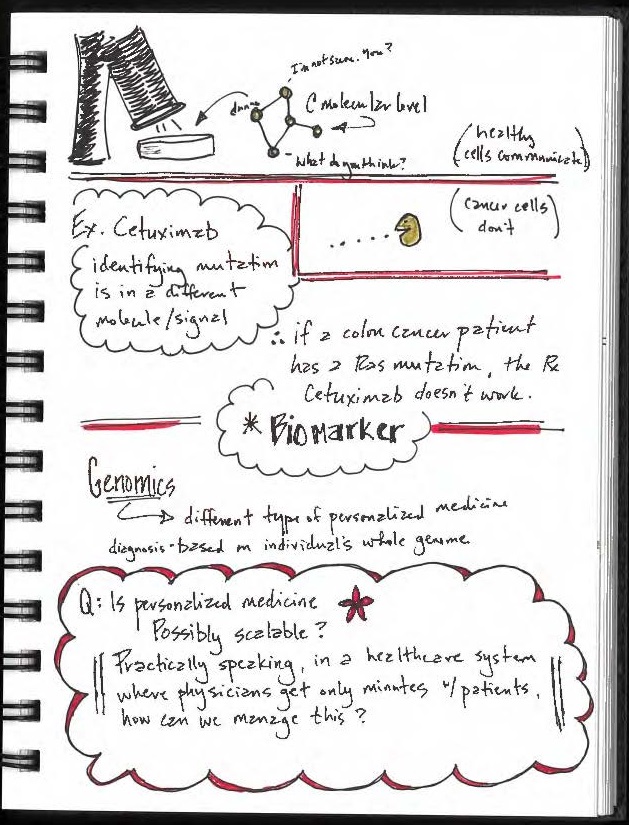 I'm not sure. You?
dunno
@ molecular level
- What do you think?
(healthy
cells communicate)
(cancer cells
don't)
Ex. Cetuximab
identifying mutation
is in a different
molecule/signal
∴ if a colon cancer patient
has a Ras mutation, the Rx
Cetuximab doesn't work.
* Biomarker
Genomics
different type of personalized medicine
diagnosis - based on individual's whole genome.
Q: Is personalized medicine
Possibly scalable?
Practically speaking, in a healthcare system
where physicians get only minutes w/ patients,
how can we manage this?